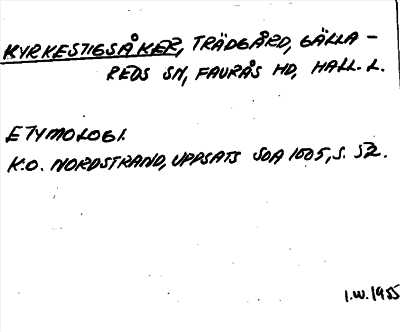 KYRKESTIGSÅKER, TRÄDGÅRD, GÄLLA-
REDS SN, FAURÅS HD, HALL. L.
ETYMOLOGI.
K.O. NORDSTRAND, UPPSATS SOA 1005, S. 52.
I.W. 1955